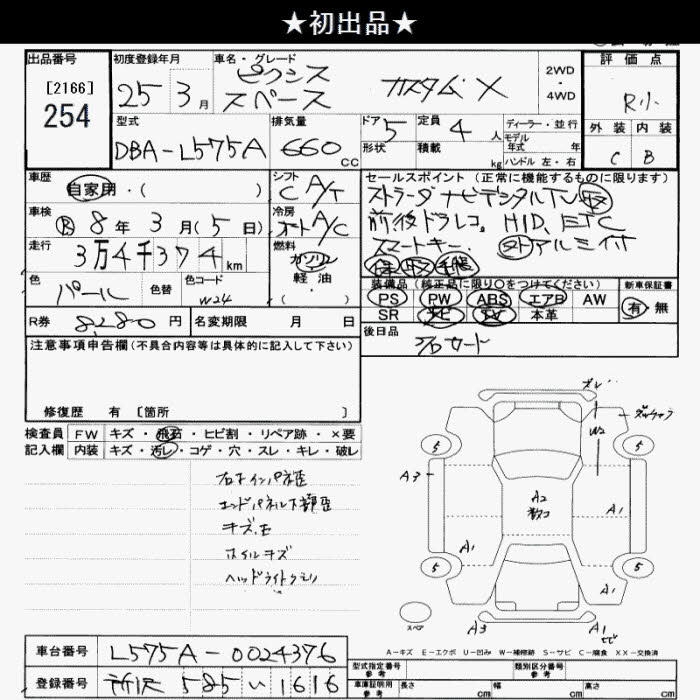 ★初出品★
出品番号
[2166]
254
初度登録年月
25 3月
車名・グレード
ピクシス
スペース
カスタム X
2WD
・
4WD
評価点
R小
外装 内装
C B
型式
DBA-L575A
排気量
660 cc
ドア 5
定員 4 人
形状
積載 kg
ディーラー・並行
モデル
年式 年
ハンドル 左・右
車歴
自家用・( )
シフト
C A/T
セールスポイント (正常に機能するものに限ります)
ストラーダナビデジタルTV
前後ドラレコ。HID、ETC
スマートキー、アルミ付
車検
R 8年 3月(5日)
冷房
オート A/C
走行
3万4千374km
燃料
ガソリン
軽油
・
( )
色
パール
色替
色コード
W24
装備品(純正品に限り〇をつけてください)
PS PW ABS エアB AW
SR ナビ TV 本革
新車保証書
有・無
R券 8,280円
名変期限 月 日
後日品
注意事項申告欄(不具合内容等は具体的に記入して下さい)
修復歴 有 [箇所 ]
検査員
記入欄
FW キズ・飛石・ヒビ割・リペア跡・×要
内装 キズ・汚レ・コゲ・穴・スレ・キレ・破レ
右インパネ歪
エンドパネル下部歪
キズ、E
ホイルキズ
ヘッドライトクモリ
ズレ
W2
5
5
A3
A2
数コ
A1
A1
5
5
A1
スペア
A3
A1
A-キズ E-エクボ U-凹み W-補修跡 S-サビ C-腐食 XX-交換済
車台番号 L575A-0024376
登録番号 所沢 585 い 1616
型式指定番号
参考
類別区分番号
参考
車庫証明用
参考
長さ cm
幅 cm
高さ cm